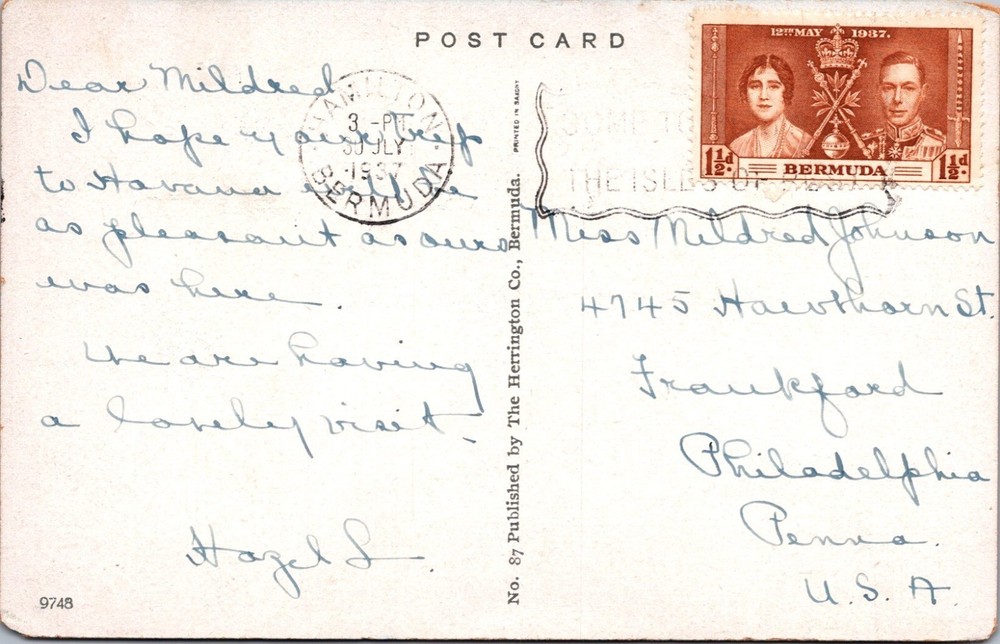 POST CARD
Dear Mildred
I hope your trip
to Havana will be
as pleasant as ours
was here.
We are having
a lovely visit.
Hazel L.
9748
HAMILTON
3 - PM
30 JULY
1937
BERMUDA
PRINTED IN SAXONY
No. 87 Published by The Herrington Co., Bermuda.
COME TO
THE ISLES OF REST
12TH MAY 1937.
1½d. BERMUDA 1½d.
Miss Mildred Johnson
4745 Hawthorn St.
Frankford
Philadelphia
Penna.
U.S.A.